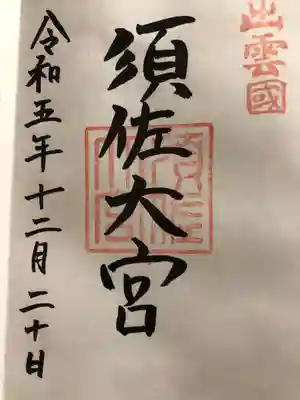 出雲國
須佐大宮
令和五年十二月二十日